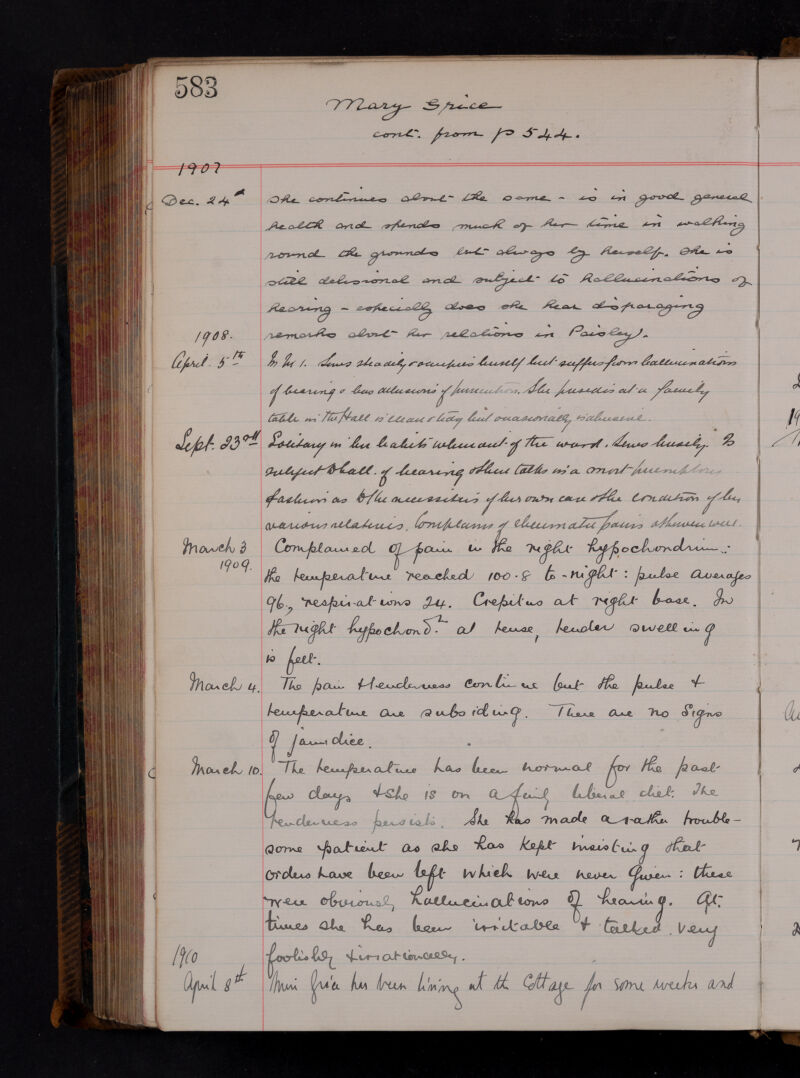 583
Mary Grice
cont. from p 544.
1907
Dec. 24th She continues about the same - is in good general
health and spends much of her time in walking
round the grounds but always by herself. She is
still delusional and subject to hallucinations of
hearing - especially does she hear disparaging
1908. remarks about her relations in Paisley).
April. 5th Sews steadily occupies herself but suffers from hallucinations
of hearing & has delusions of persecution. She presides at a family
table in The Hall is clean & tidy but occasionally is abusive.
Sept. 23rd Solitary in her habits when out of the ward. Sews busily. Is
subject to hall. of hearing often talks in a most peremptory
fashion as to the necessities of her own case & the condition of her
various relatives. Complains of rheumatic pains otherwise well.
March 3 Complained of pain in the right hypochondrium:
1909. the temperature reached 100.8 to-night: pulse averages
96, respirations 24. Crepitus at right base. In
the right hypochond. a tense, tender swelling
is felt.
March 4. The pain & tenderness continue but the pulse &
temperature are subsiding. There are no signs
of jaundice.
March 10. The temperature has been normal for the past
few days & she is on a fairly liberal diet. The
tenderness persists. She has made a rather trouble-
some patient as she has kept insisting that
orders have been left which were never given: these
were obviously hallucinations of hearing. At
times she has been irritable & talked very
1910 foolishly & irrationally.
April 8th Miss Grice has been living at the Cottage for some weeks and